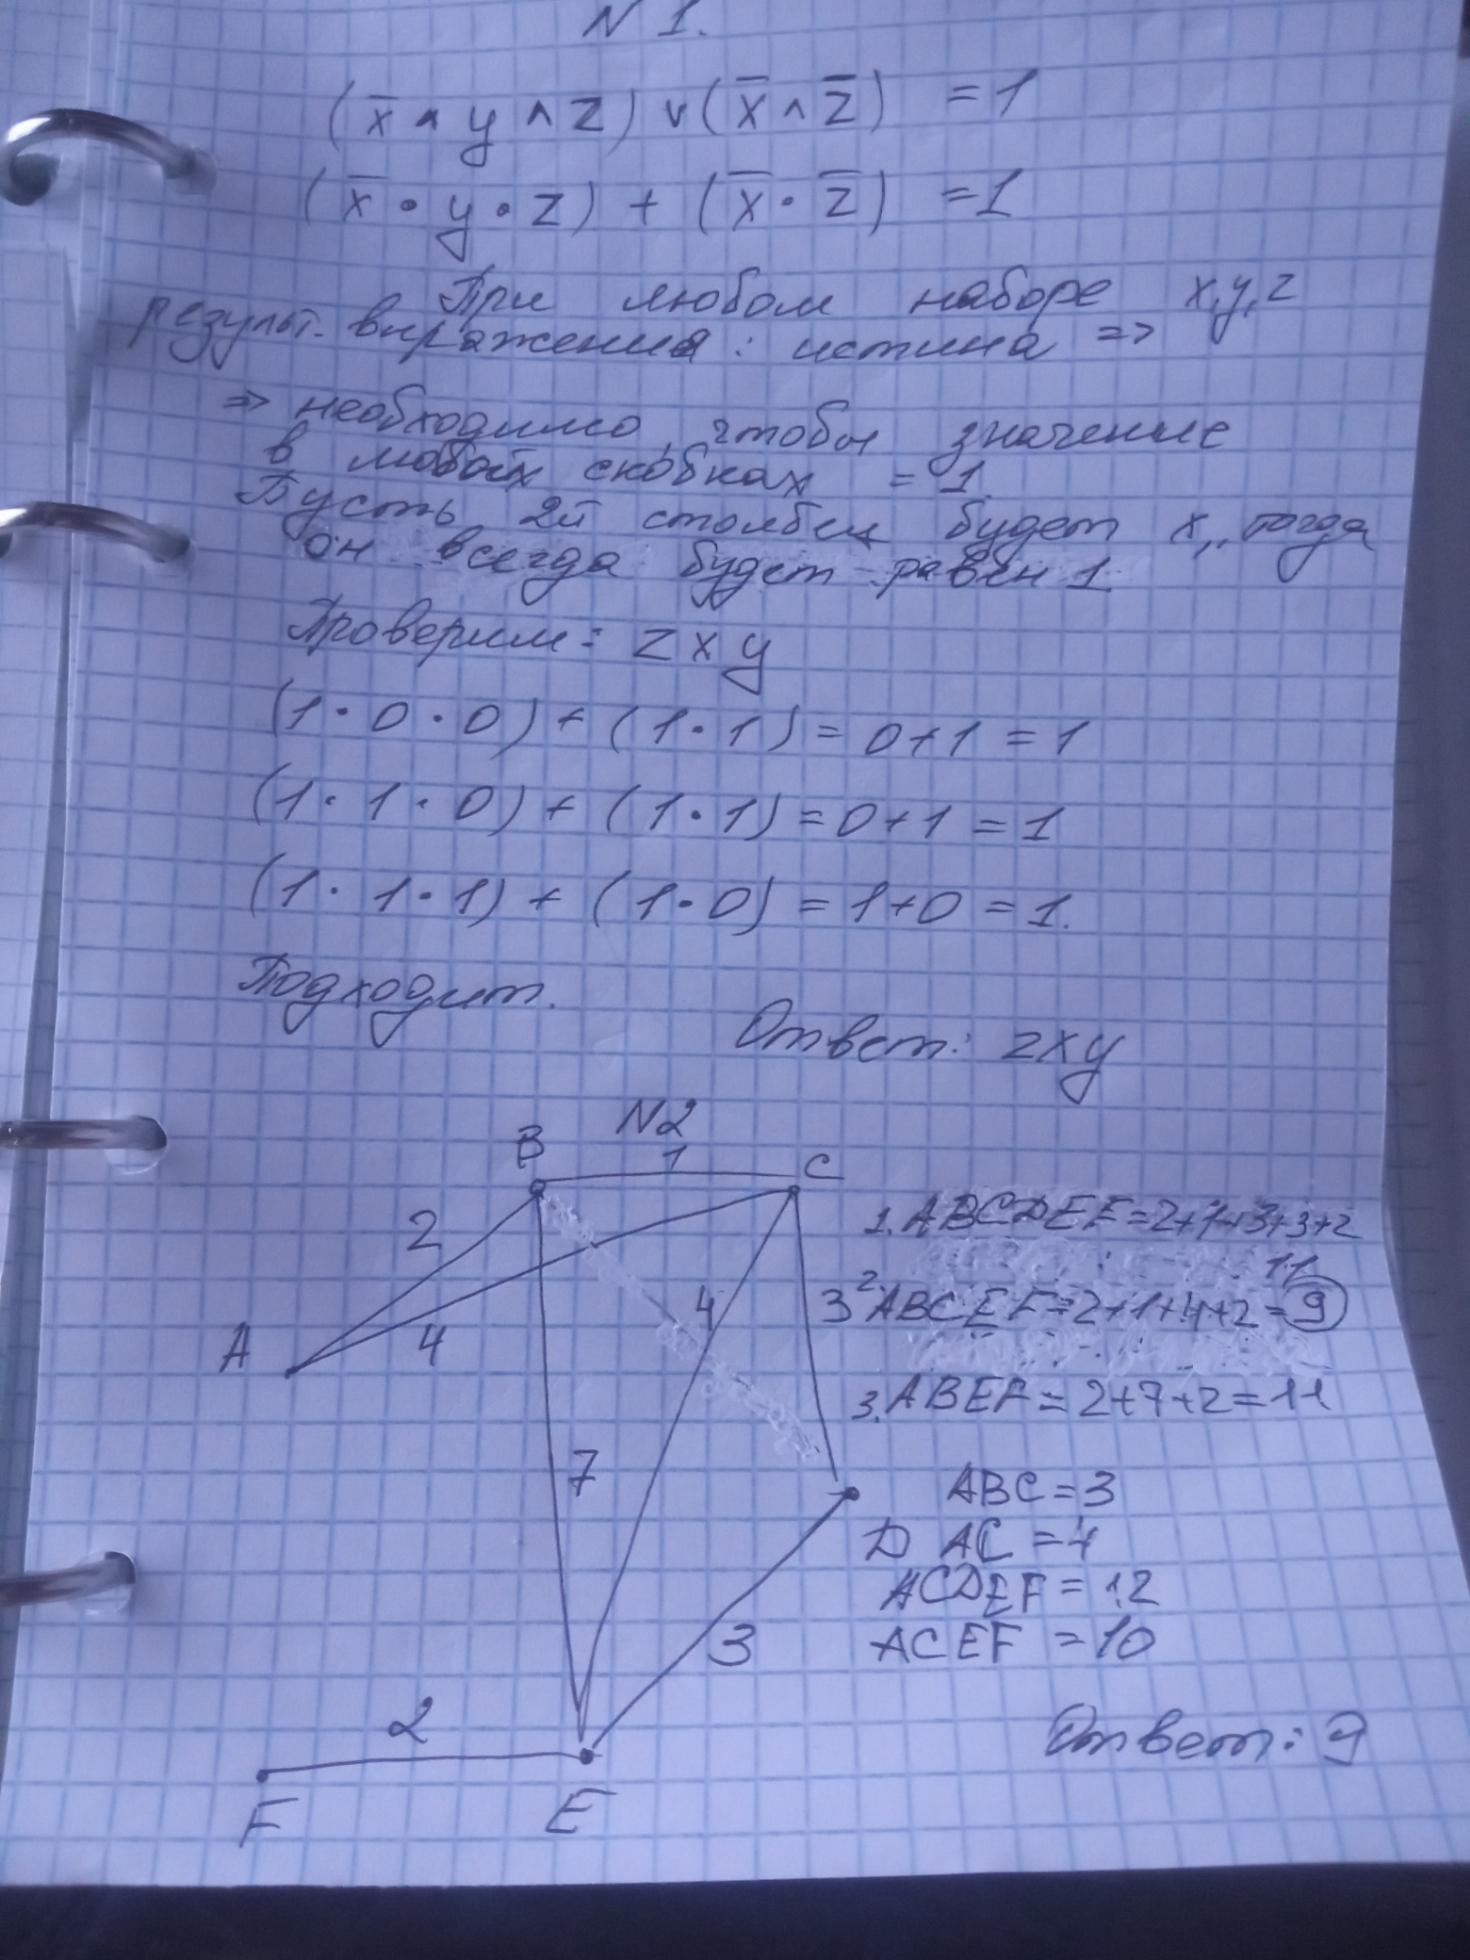 N 1.
(x̅ ∧ y ∧ z) ∨ (x̅ ∧ z̅) = 1
(x̅ · y · z) + (x̅ · z̅) = 1
При любом наборе x,y,z
результ. выражения: истина =>
=> необходимо, чтобы значение
в любых скобках = 1.
Пусть 2й столбец будет x, тогда
он всегда будет равен 1
Проверим: z x y
(1 · 0 · 0) + (1 · 1) = 0+1 = 1
(1 · 1 · 0) + (1 · 1) = 0+1 = 1
(1 · 1 · 1) + (1 · 0) = 1+0 = 1.
Подходит.
Ответ: zxy
N2
B 1 C
2
A 4
4
3
7
D
3
2
F E
1. ABCDEF = 2+1+3+3+2
11
2 ABCEF = 2+1+4+2 = 9
3. ABEF = 2+7+2 = 11
ABC = 3
AC = 4
ACDEF = 12
ACEF = 10
Ответ: 9